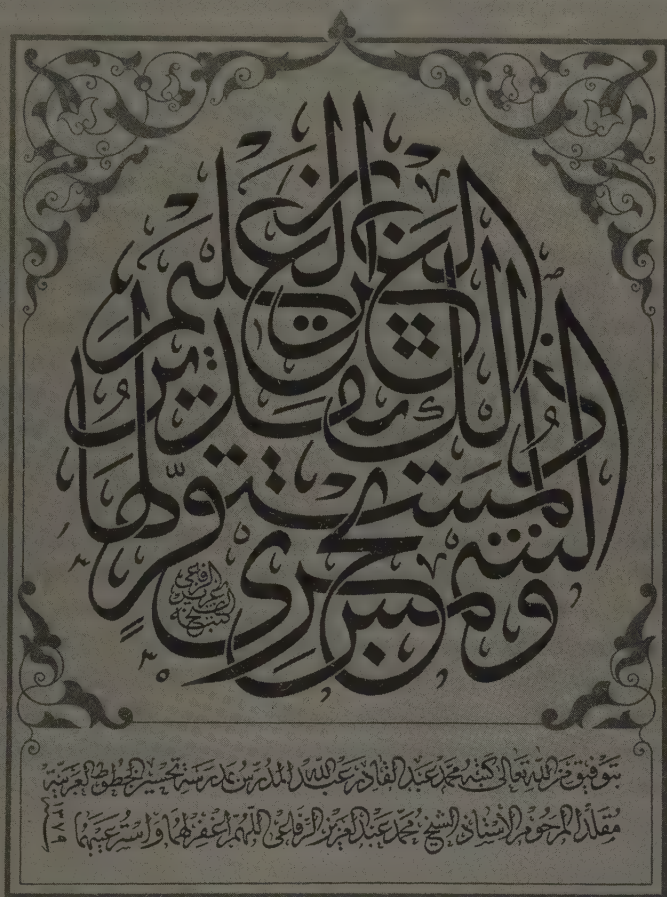 والشمس تجري لمستقر لها ذلك تقدير العزيز العليم
كتبه الشيخ عبد العزيز الرفاعي
بتوفيق من الله تعالى كتبه محمد عبد القادر عبد الله المدرس بمدرسة تحسين الخطوط العربية
مقلدا المرحوم الأستاذ الشيخ محمد عبد العزيز الرفاعي اللهم اغفر لهما واستر عيبهما
١٣٧٩